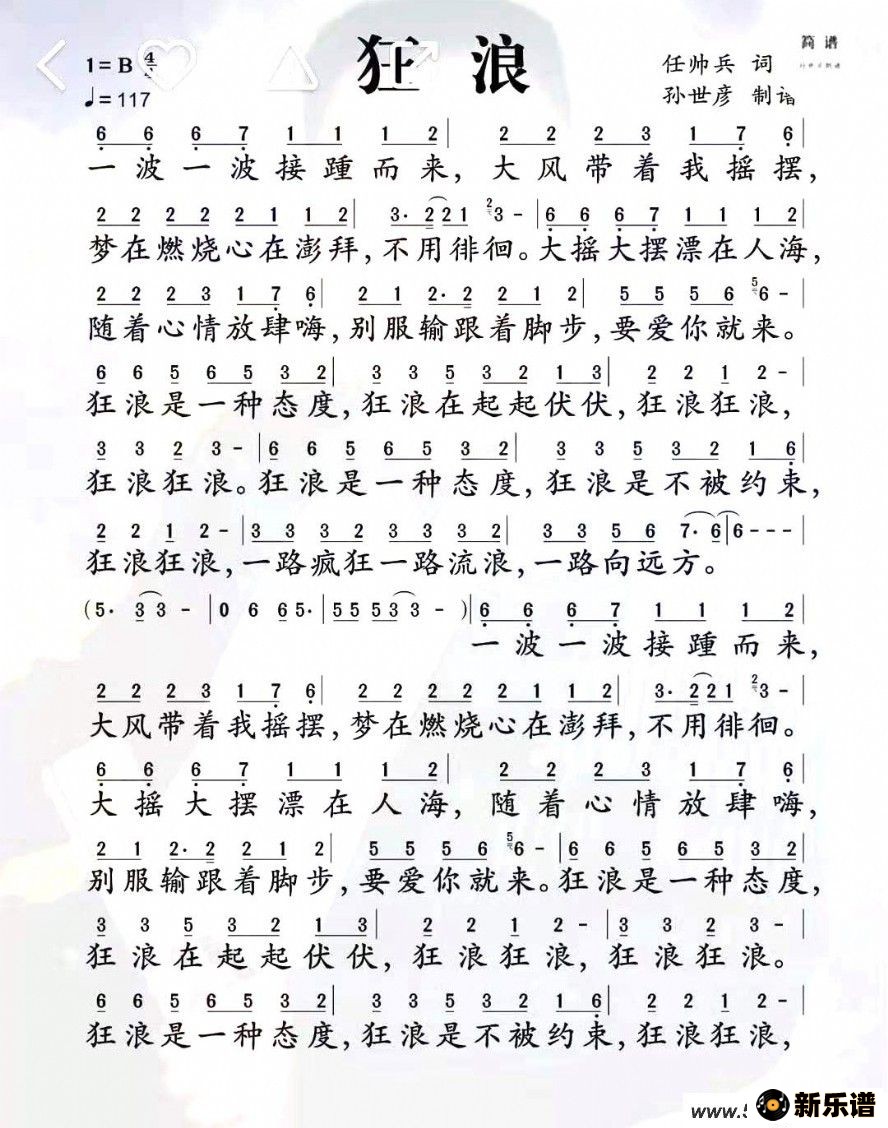 狂浪
简谱
1=B 4
任帅兵 词
♩=117
孙世彦 制谱
6 6 6 7 1 1 1 2| 2 2 2 3 1 7 6|
一波一波接踵而来,大风带着我摇摆,
2 2 2 2 2 1 1 2| 3· 2 2 1 2 3 -|6 6 6 7 1 1 1 2|
梦在燃烧心在澎拜,不用徘徊。大摇大摆漂在人海,
2 2 2 3 1 7 6| 2 1 2· 2 2 1 2| 5 5 5 6 5 6 -|
随着心情放肆嗨,别服输跟着脚步,要爱你就来。
6 6 5 6 5 3 2| 3 3 5 3 2 1 3| 2 2 1 2 -|
狂浪是一种态度,狂浪在起起伏伏,狂浪狂浪,
3 3 2 3 -|6 6 5 6 5 3 2| 3 3 5 3 2 1 6|
狂浪狂浪。狂浪是一种态度,狂浪是不被约束,
2 2 1 2 -|3 3 3 2 3 3 3 2| 3 3 5 6 7· 6|6 - - -|
狂浪狂浪,一路疯狂一路流浪,一路向远方。
(5· 3 3 -|0 6 6 5·|5 5 5 3 3 -)|6 6 6 7 1 1 1 2|
一波一波接踵而来,
2 2 2 3 1 7 6| 2 2 2 2 2 1 1 2| 3· 2 2 1 2 3 -|
大风带着我摇摆,梦在燃烧心在澎拜,不用徘徊。
6 6 6 7 1 1 1 2| 2 2 2 3 1 7 6|
大摇大摆漂在人海,随着心情放肆嗨,
2 1 2· 2 2 1 2| 5 5 5 6 5 6 -|6 6 5 6 5 3 2|
别服输跟着脚步,要爱你就来。狂浪是一种态度,
3 3 5 3 2 1 3| 2 2 1 2 -|3 3 2 3 -|
狂浪在起起伏伏,狂浪狂浪,狂浪狂浪。
6 6 5 6 5 3 2| 3 3 5 3 2 1 6| 2 2 1 2 -|
狂浪是一种态度,狂浪是不被约束,狂浪狂浪,
www.
新乐谱